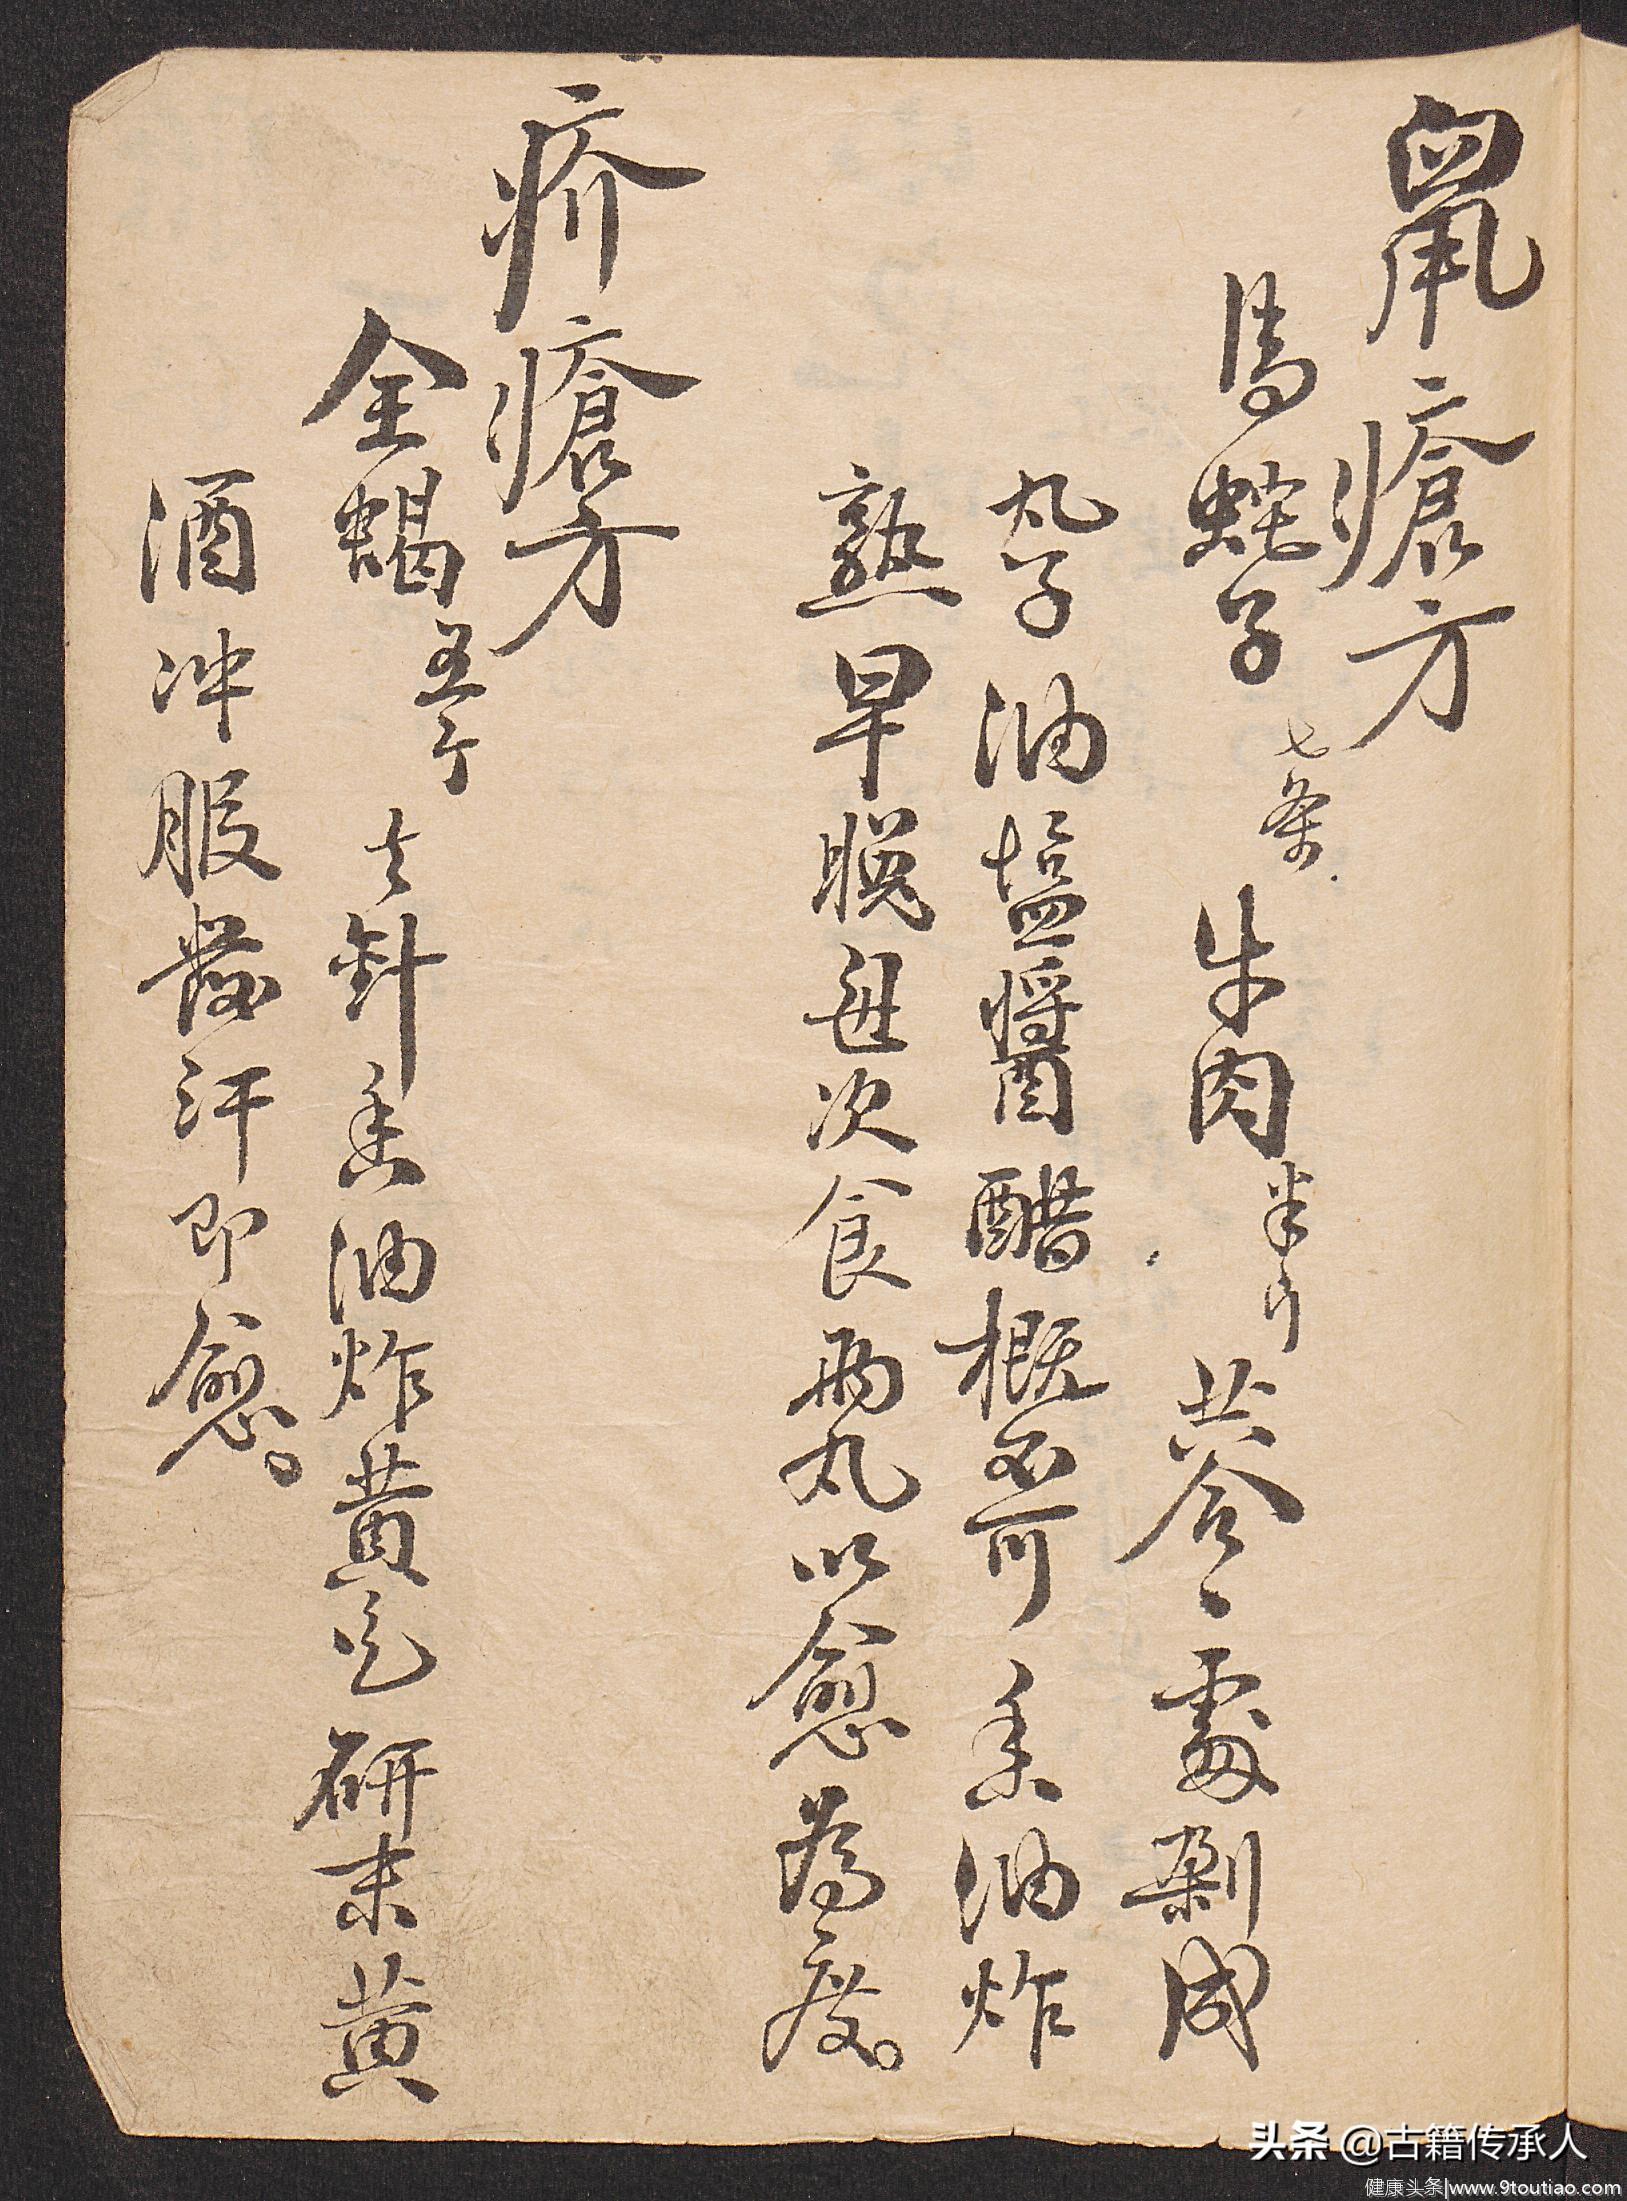 鼠瘡方
馬蛇子 七条 牛肉 半斤 共合一處剁成
丸子油塩醬醋概不可香油炸
熟早晚每次食兩丸以愈為度。
疥瘡方
全蝎 五个 去針香油炸黄色研末黄
酒冲服發汗即愈。
头条 @古籍传承人
健康头条|www.9toutiao.com